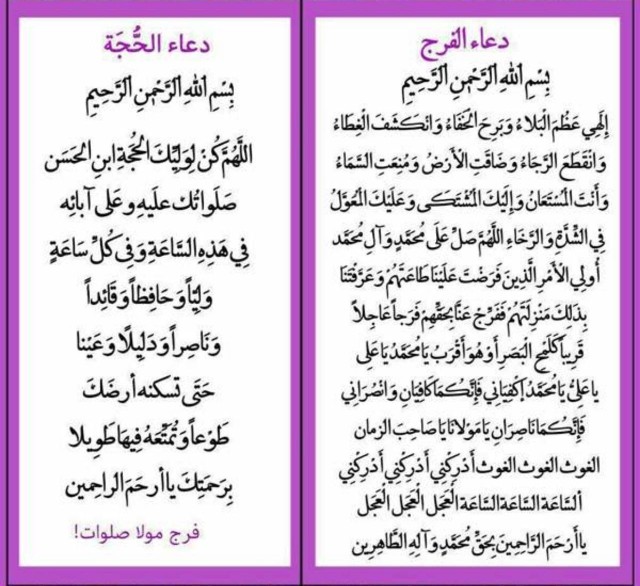 دعاء الفرج
بِسْمِ اللهِ الرَّحْمنِ الرَّحِيمِ
إِلهِي عَظُمَ الْبَلاءُ وَبَرِحَ الْخَفَاءُ وَانْكَشَفَ الْغِطَاءُ
وَانْقَطَعَ الرَّجَاءُ وَضَاقَتِ الْأَرْضُ وَمُنِعَتِ السَّمَاءُ
وَأَنْتَ الْمُسْتَعَانُ وَإِلَيْكَ الْمُشْتَكَى وَعَلَيْكَ الْمُعَوَّلُ
فِي الشِّدَّةِ وَالرَّخَاءِ اللَّهُمَّ صَلِّ عَلَى مُحَمَّدٍ وَآلِ مُحَمَّد
أُولِي الْأَمْرِ الَّذِينَ فَرَضْتَ عَلَيْنَا طَاعَتَهُمْ وَعَرَّفْتَنَا
بِذلِكَ مَنْزِلَتَهُمْ فَفَرِّجْ عَنَّا بِحَقِّهِمْ فَرَجاً عَاجِلاً
قَرِيباً كَلَمْحِ الْبَصَرِ أَوْ هُوَ أَقْرَبُ يَا مُحَمَّدُ يَا عَلِي
يا عَلِيُّ يَا مُحَمَّدُ إِكْفِيَانِي فَإِنَّكُمَا كَافِيَانِ وَانْصُرَانِي
فَإِنَّكُمَا نَاصِرَانِ يَا مَوْلانَا يَا صَاحِبَ الزمان
الغوث الغوث الغوث أَدْرِكْنِي أَدْرِكْنِي أَدْرِكْنِي
ألسَّاعَةَ السَّاعَةَ السَّاعَة الْعَجَل الْعَجَل الْعَجَل
يا أَرْحَمَ الرَّاحِمِينَ بِحَقِّ مُحَمَّدٍ وَآلِهِ الطَّاهِرِين
دعاء الحُّجَة
بِسْمِ اللهِ الرَّحْمنِ الرَّحِيمِ
اللَّهُمَّ كُنْ لِوَلِيِّكَ الحُجَّةِ ابنِ الحَسَن
صَلَواتُك علَيهِ وعَلى آبائِه
فِي هَذِهِ السَّاعَةِ وَفِي كُلِّ سَاعَةٍ
وَلِيّاً وَحَافِظاً وَقَائِداً
وَنَاصِراً وَدَلِيلًا وَعَيْنا
حَتَى تسكنه أرضَكَ
طَوْعاً وَتُمَتِّعَهُ فِيهَا طَوِيلا
بِرَحمَتِكَ يا أرحَمَ الراحِمين
فرج مولا صلوات!